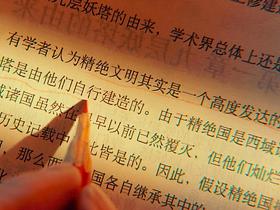 九层妖塔的由来，学术界总体上还是
有学者认为精绝文明其实是一个高度发达的
塔是由他们自行建造的。由于精绝国是西域
域诸国虽然在 早以前已然覆灭，但他们灿烂
历史记载中 比皆是的。因此，假设精绝
，那么 国各自继承其中的